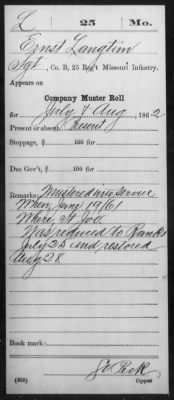 L | 25 | Mo.
Ernst Langtim
Sgt., Co. B, 25 Reg't Missouri Infantry.
Appears on
Company Muster Roll
for July & Aug, 1862
Present or absent Present
Stoppage, $ 100 for
Due Gov't, $ 100 for
Remarks: Mustered into service
When June 19/61
Where St Jos.
Was reduced to Ranks
July 25 and restored
Aug 28
Book mark:
(858) Copyist